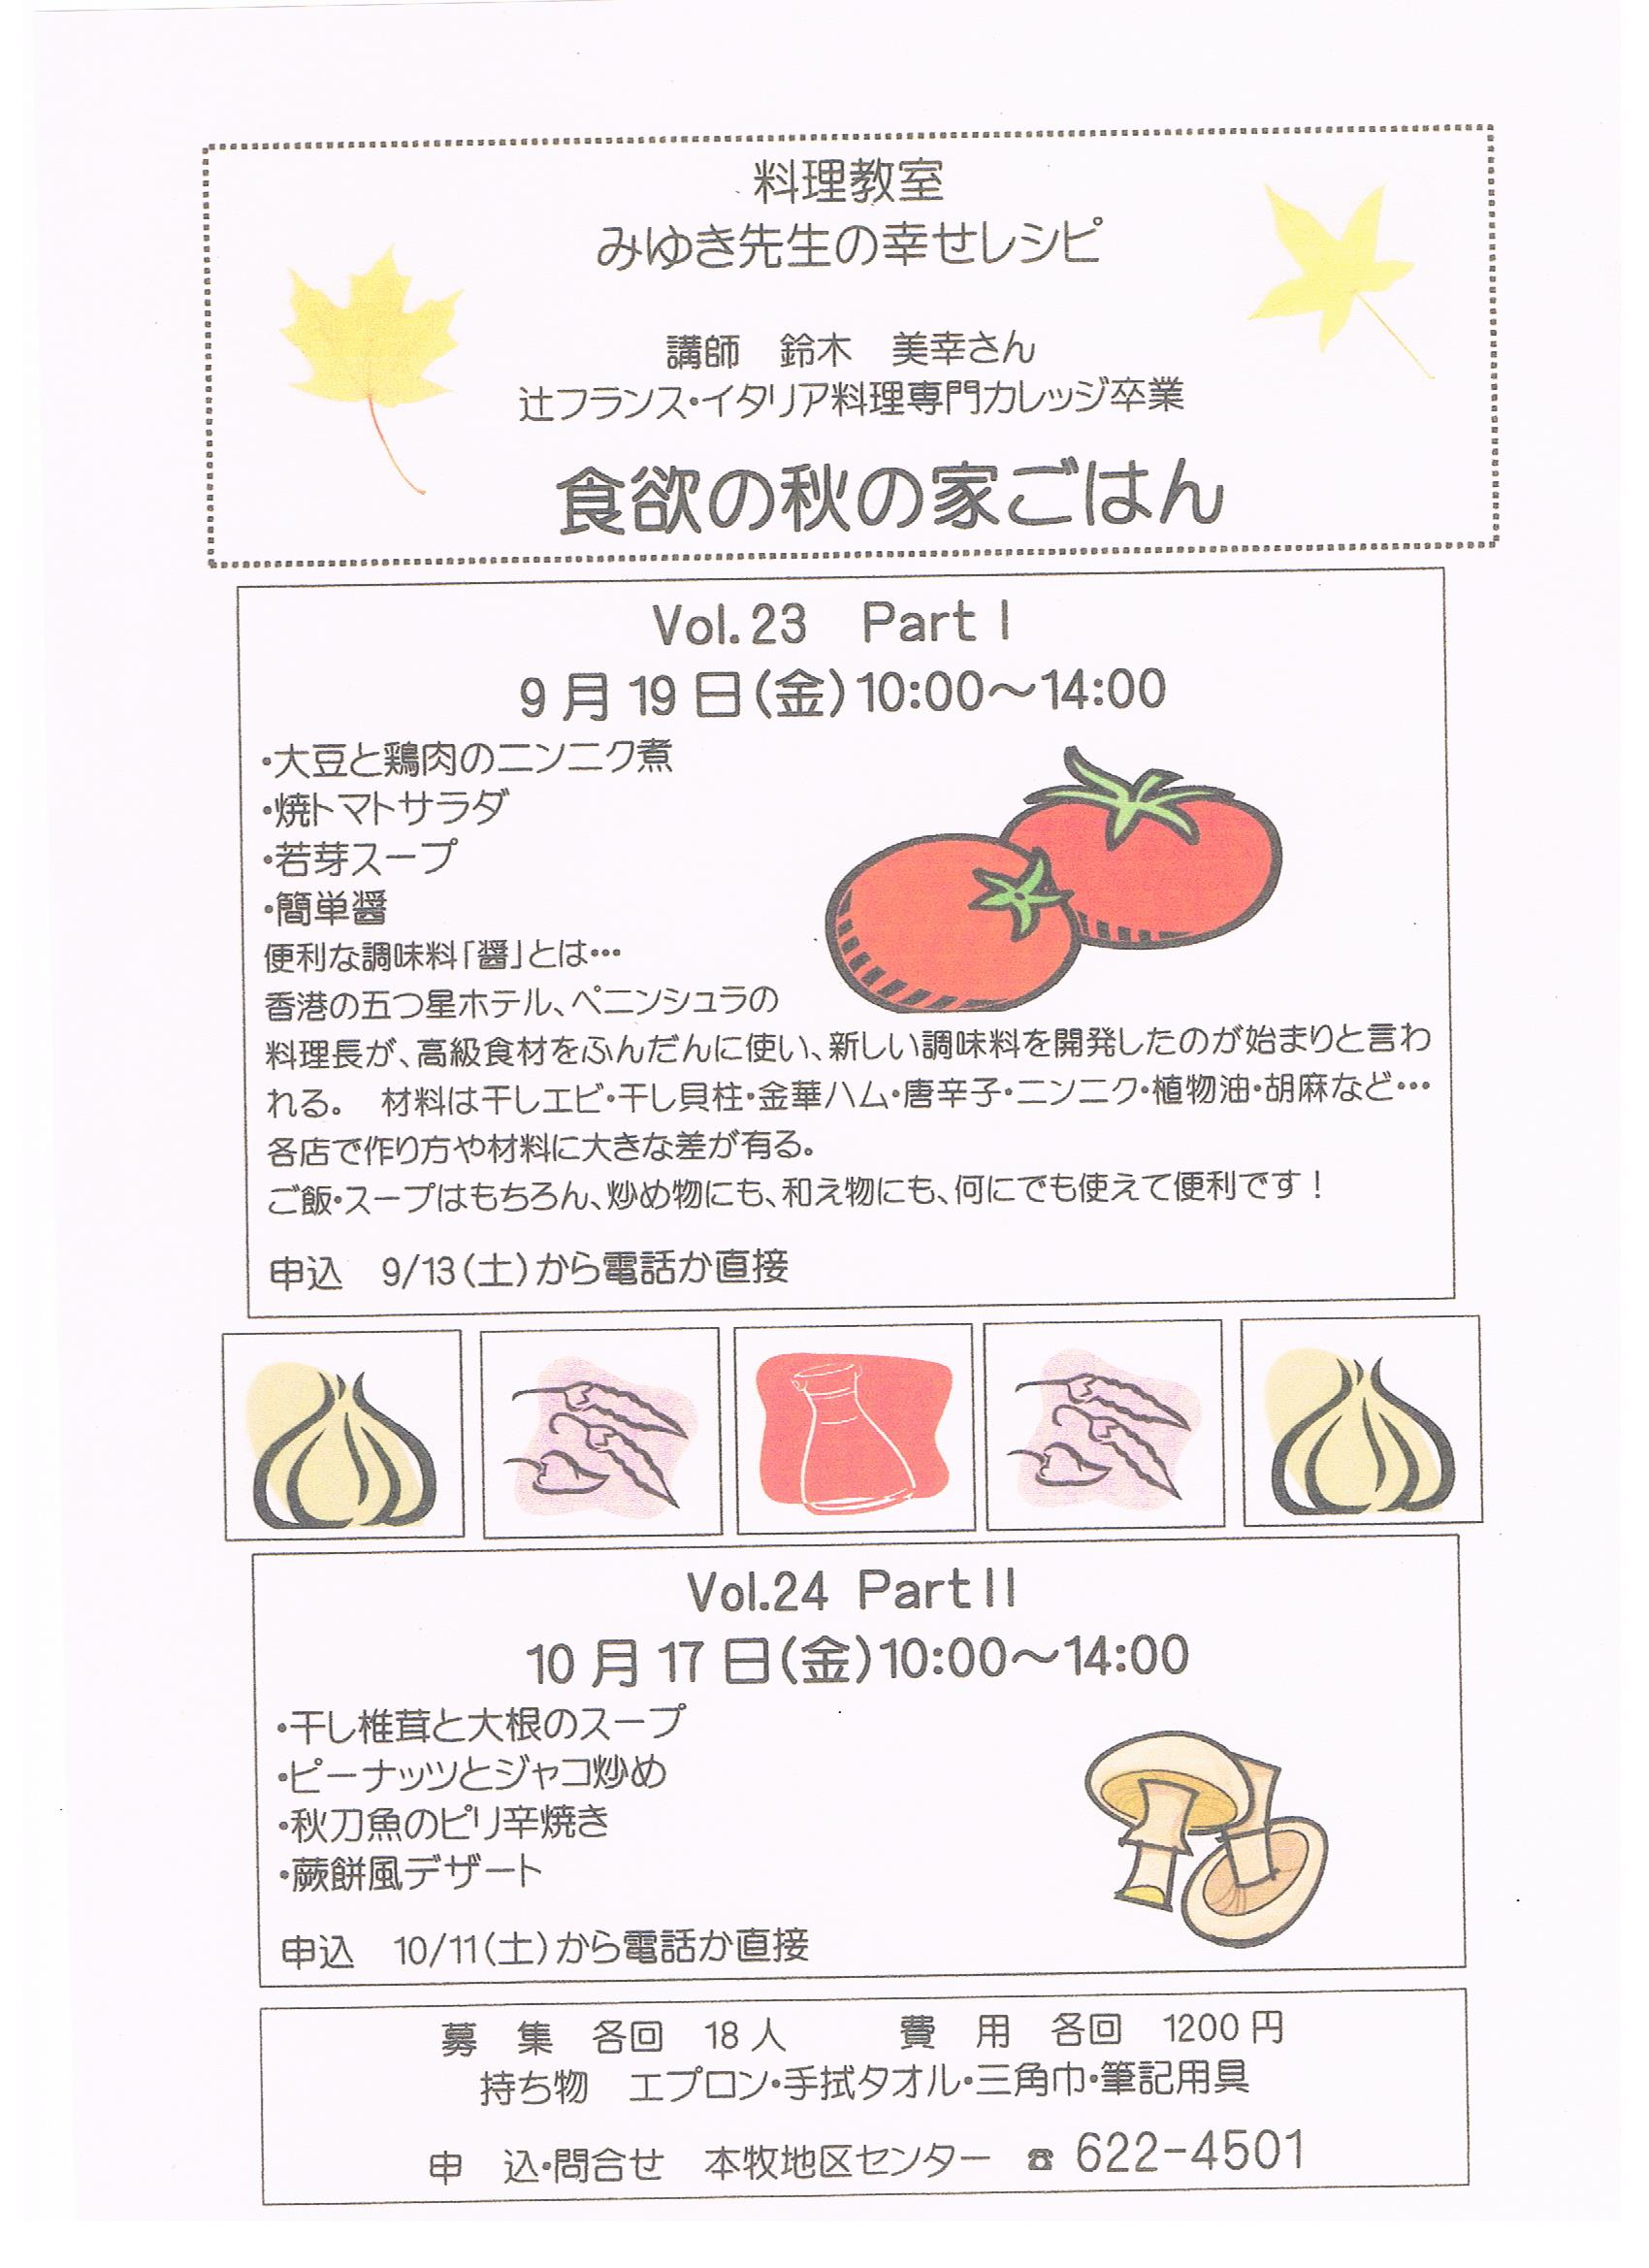 料理教室
みゆき先生の幸せレシピ
講師　鈴木　美幸さん
辻フランス・イタリア料理専門カレッジ卒業
食欲の秋の家ごはん
Vol.23　Part I
9月19日(金)10:00～14:00
・大豆と鶏肉のニンニク煮
・焼トマトサラダ
・若芽スープ
・簡単醤
便利な調味料「醤」とは…
香港の五つ星ホテル、ペニンシュラの
料理長が、高級食材をふんだんに使い、新しい調味料を開発したのが始まりと言わ
れる。　材料は干しエビ・干し貝柱・金華ハム・唐辛子・ニンニク・植物油・胡麻など…
各店で作り方や材料に大きな差が有る。
ご飯・スープはもちろん、炒め物にも、和え物にも、何にでも使えて便利です！
申込　9/13(土)から電話か直接
Vol.24 Part II
10月17日(金)10:00～14:00
・干し椎茸と大根のスープ
・ピーナッツとジャコ炒め
・秋刀魚のピリ辛焼き
・蕨餅風デザート
申込　10/11(土)から電話か直接
募　集　各回　18人　　　費　用　各回　1200円
持ち物　エプロン・手拭タオル・三角巾・筆記用具
申　込・問合せ　本牧地区センター　☎ 622-4501